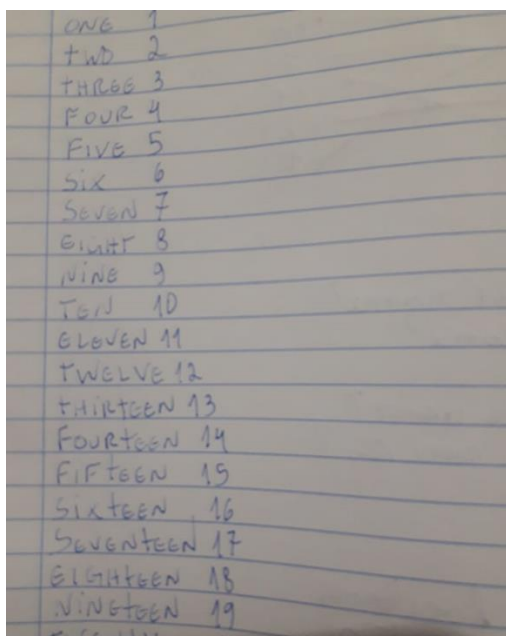 ONE 1
TWO 2
THREE 3
FOUR 4
FIVE 5
SIX 6
SEVEN 7
EIGHT 8
NINE 9
TEN 10
ELEVEN 11
TWELVE 12
THIRTEEN 13
FOURTEEN 14
FIFTEEN 15
SIXTEEN 16
SEVENTEEN 17
EIGHTEEN 18
NINETEEN 19